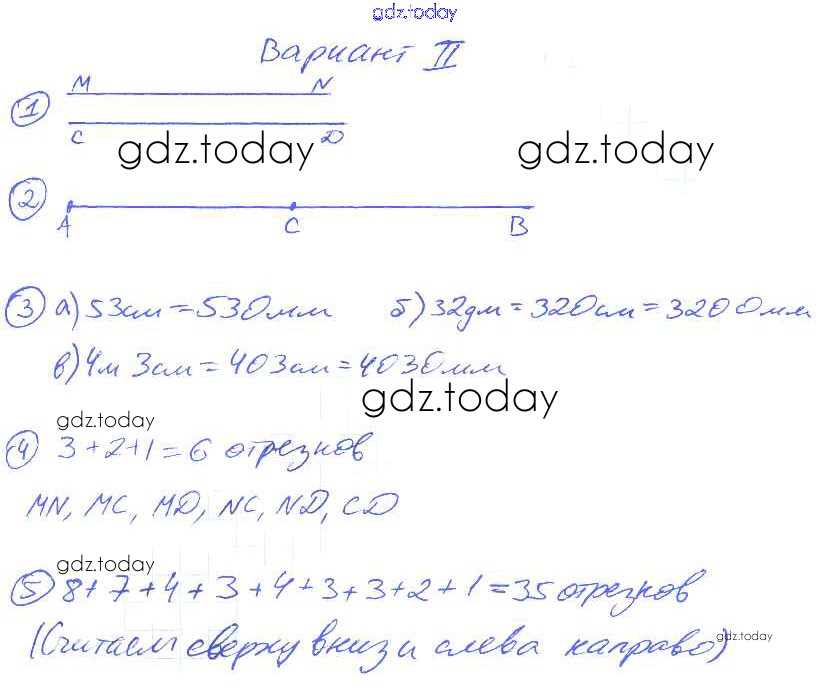 gdz.today
Вариант II
1 M N
C D
gdz.today gdz.today
2
A C B
3 а) 53см = 530мм б) 32дм = 320см = 3200мм
в) 4м 3см = 403см = 4030мм
gdz.today
gdz.today
4 3+2+1=6 отрезков
MN, MC, MD, NC, ND, CD
gdz.today
5 8+7+4+3+4+3+3+2+1=35 отрезков
gdz.today
(Считаем сверху вниз и слева направо)